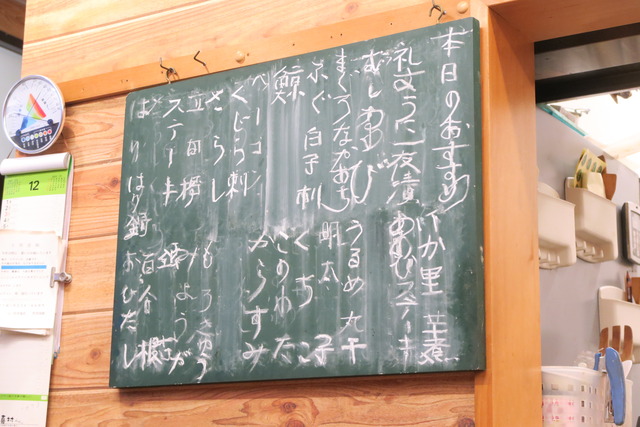 本日のおすすめ
里芋煮
礼文うに一夜漬
あわびステーキ
むしあわび
うるめ丸干
まぐろなかおち
明太
ふぐ白子刺
くちこ
鯨
このわた
ベーコン
からすみ
くじら刺
さらし
もろきゅう
立田揚
みょうが
ステーキ
はりはり鍋
百合根
おひたし
12